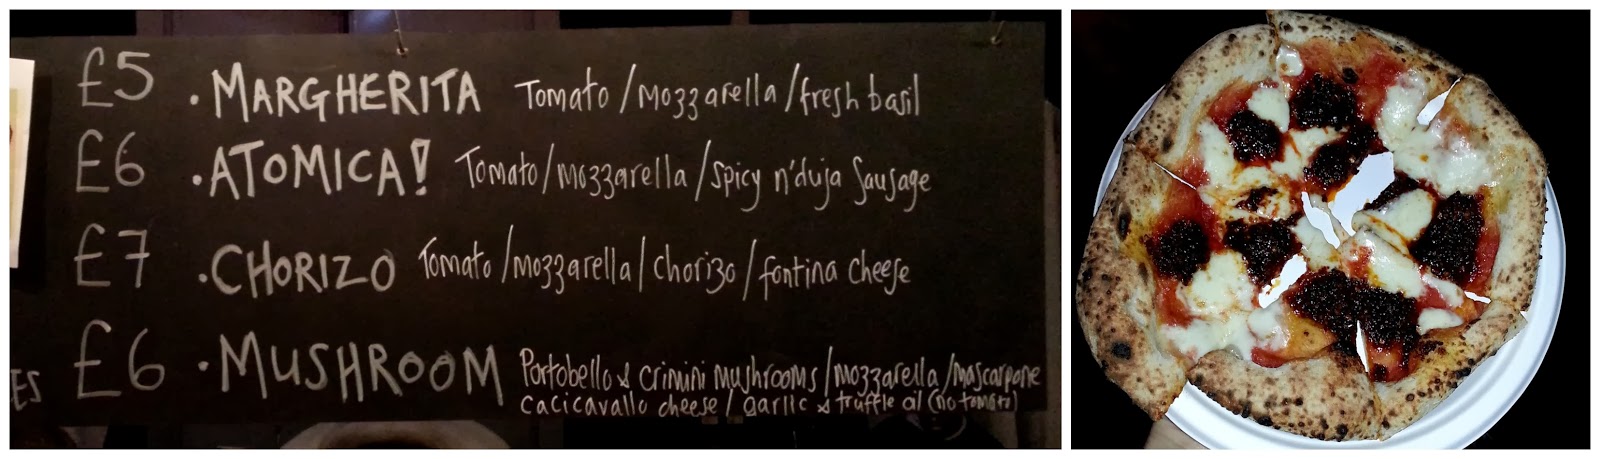 £5 . MARGHERITA Tomato/mozzarella/fresh basil
£6 . ATOMICA! Tomato/mozzarella/spicy n'duja Sausage
£7 . CHORIZO Tomato/mozzarella/chorizo/fontina cheese
£6 . MUSHROOM Portobello & crimini mushrooms/mozzarella/mascarpone
cacicavallo cheese/garlic & truffle oil (no tomato)
ES